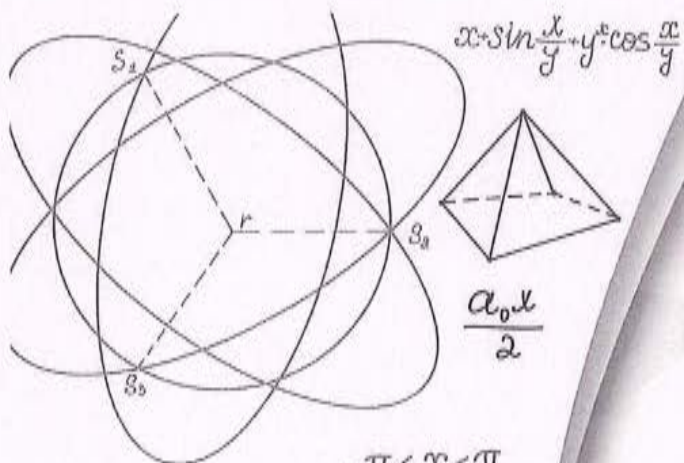 x+sin x/y + y^x cos x/y
S₁
r
S₂
a₀x
2
S₃
π ≤ x ≤ π